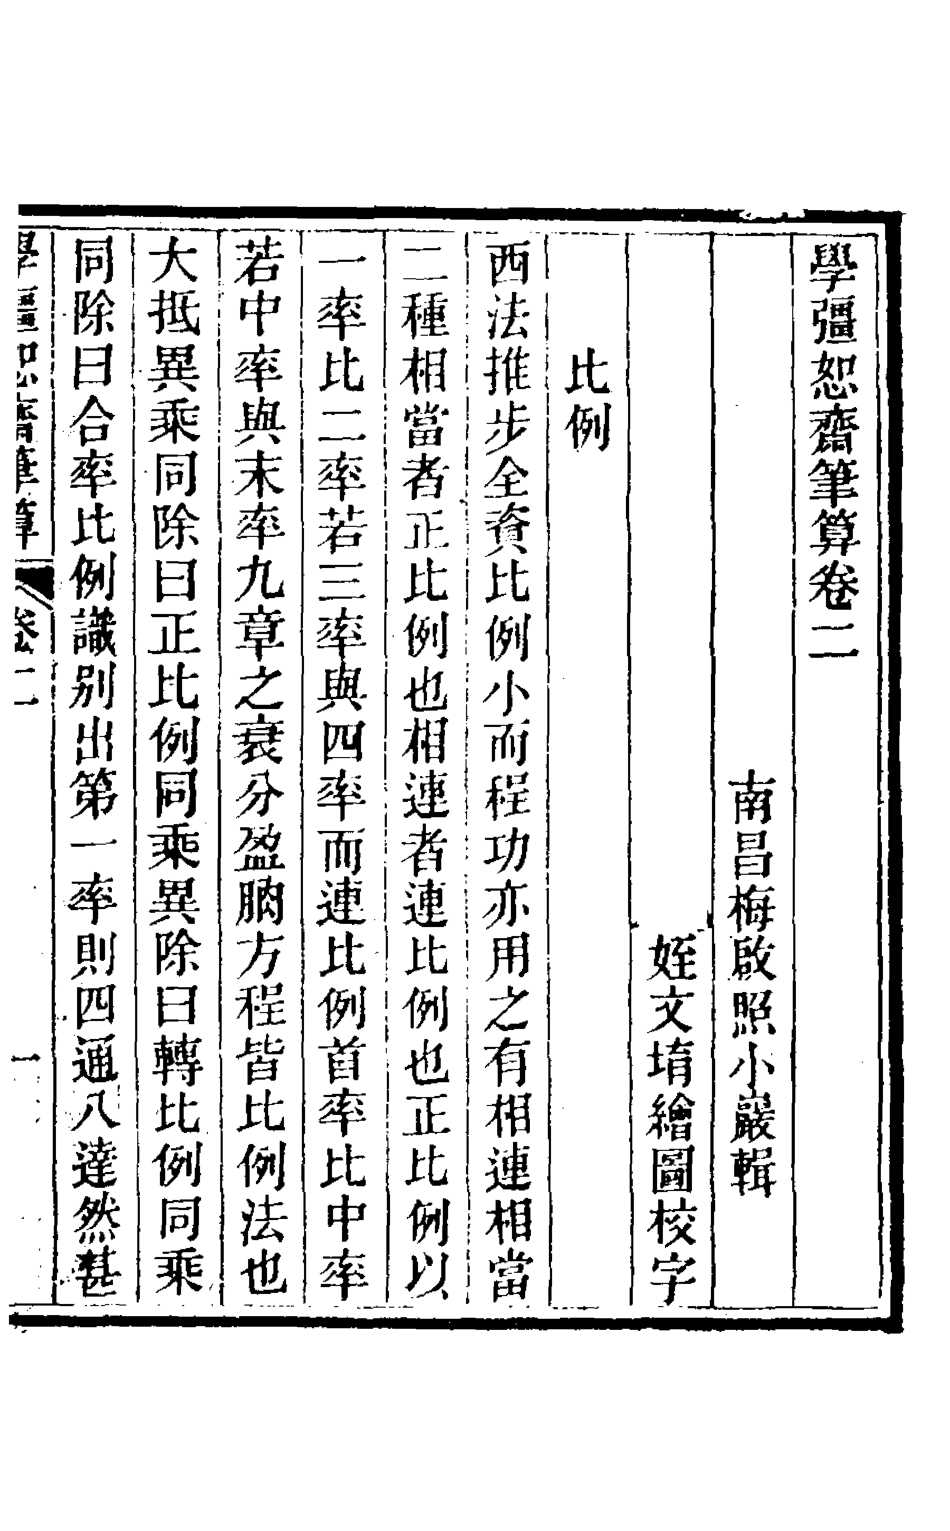 學彊恕齋筆算卷二
南昌梅啟照小巖輯
姪文堉繪圖校字
比例
西法推步全資比例小而程功亦用之有相連相當
二種相當者正比例也相連者連比例也正比例以
一率比二率若三率與四率而連比例首率比中率
若中率與末率九章之衰分盈朒方程皆比例法也
大抵異乘同除曰正比例同乘異除曰轉比例同乘
同除曰合率比例識別出第一率則四通八達然甚
學彊恕齋筆算 卷二 一